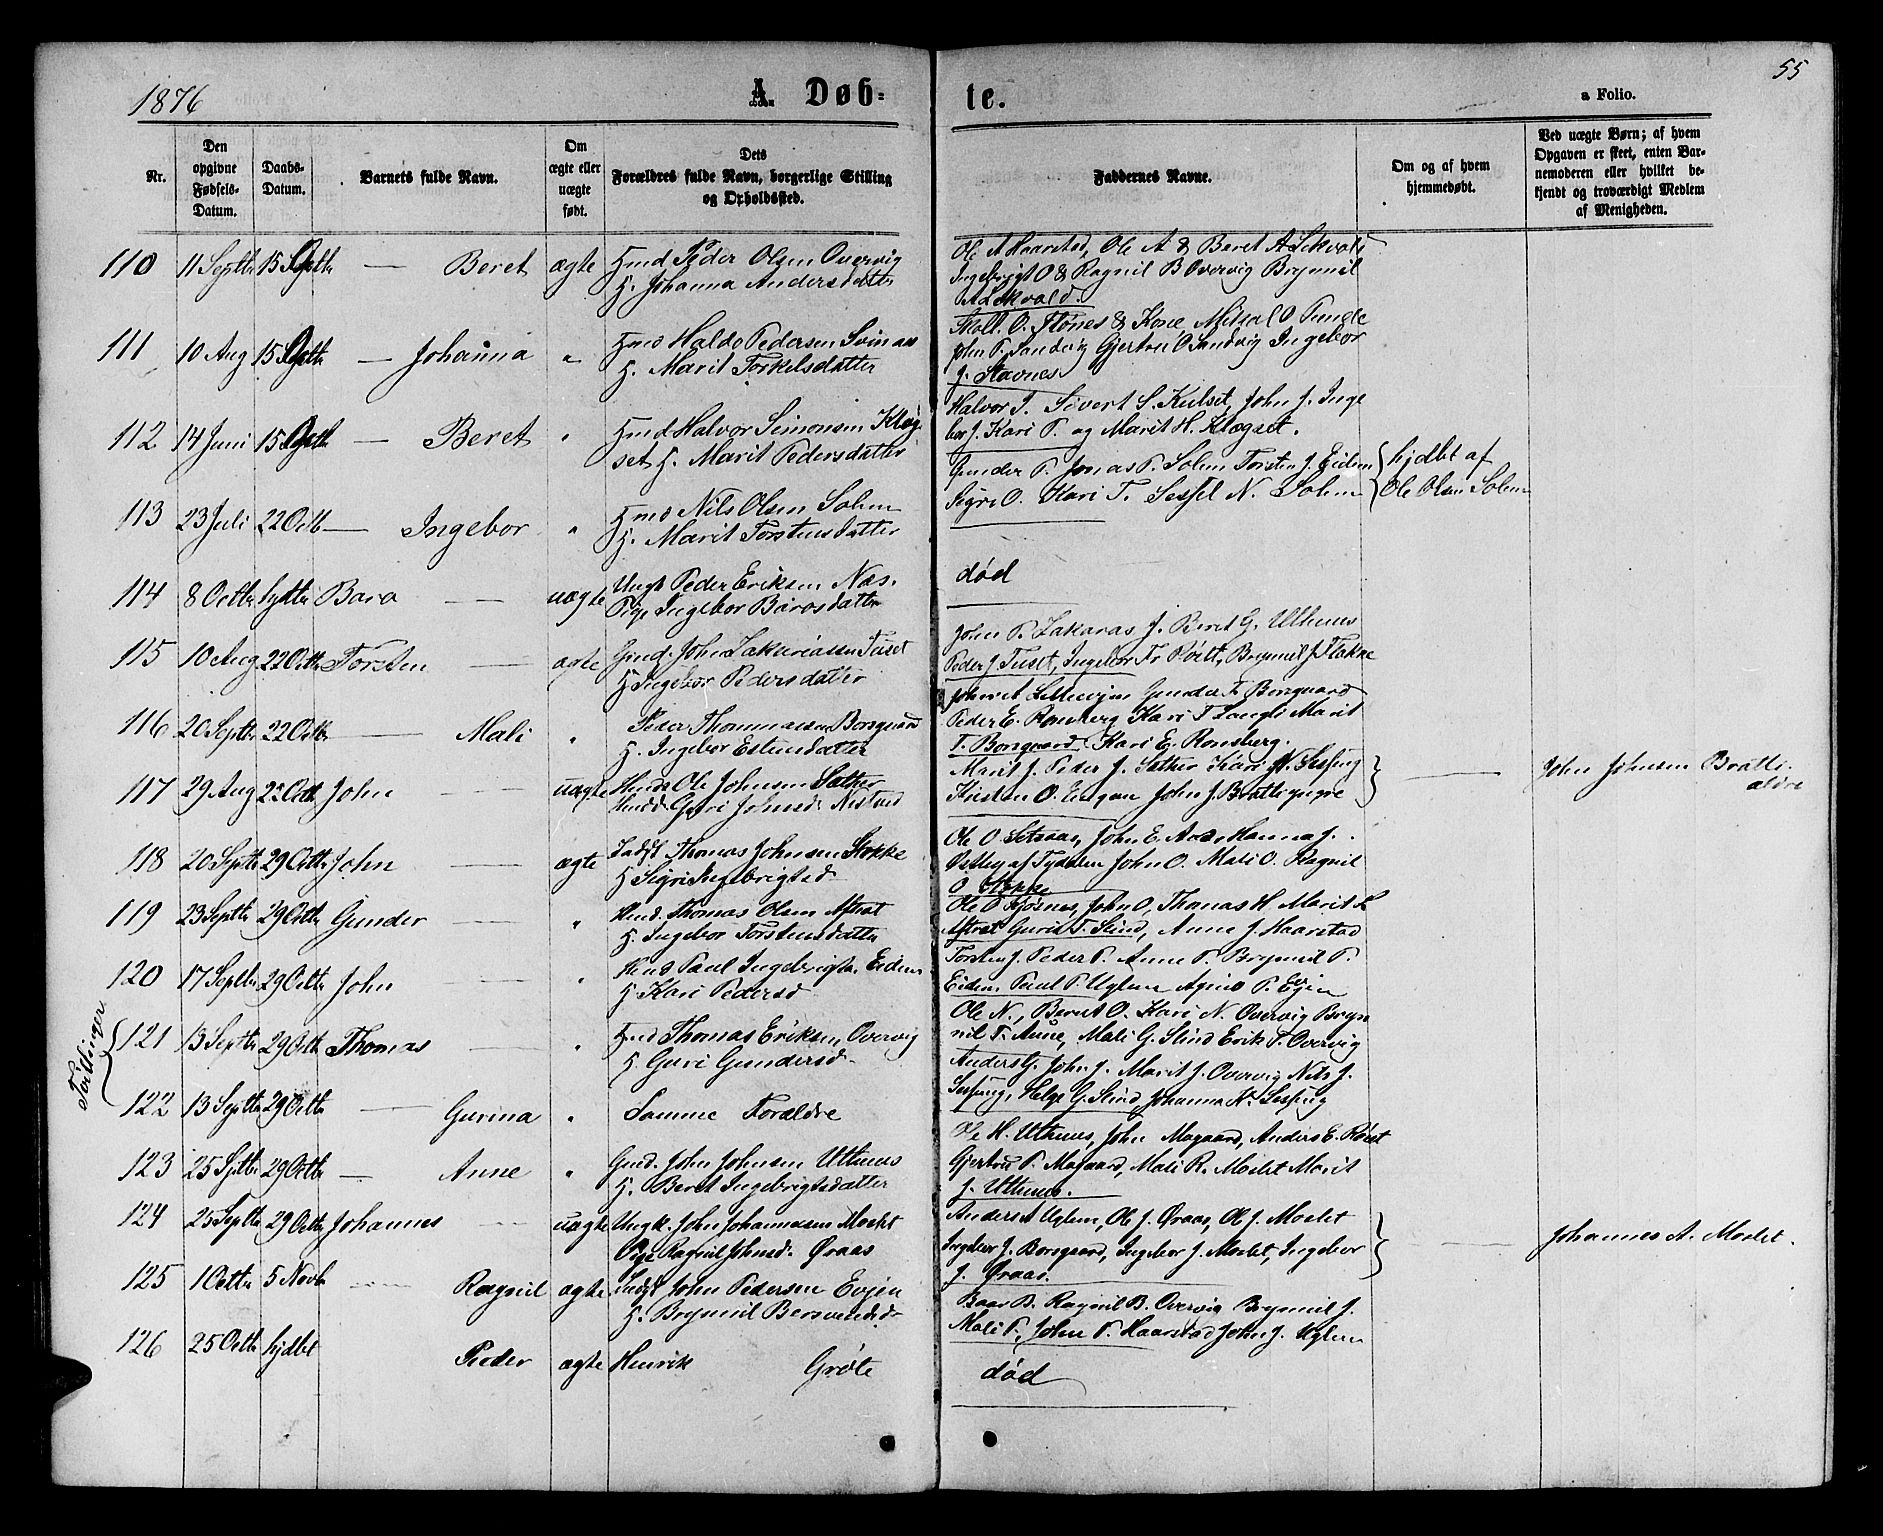 55
1876
A. Døb-
te.
a Folio.
Nr.
Den opgivne Fødsels-Datum.
Daabs-Datum.
Barnets fulde Navn.
Om ægte eller uægte født.
Dets Forældres fulde Navn, borgerlige Stilling og Opholdssted.
Faddernes Navne.
Om og af hvem hjemmedøbt.
Ved uægte Børn; af hvem Opgaven er skeet, enten Barnemoderen eller hvilket bekjendt og troværdigt Medlem af Menigheden.
110 11 Septbr 15 — Beret ægte Hmd Peder Olsen Overvig
H. Johanna Andersdatter
Ole A Haarstad, Ole A & Beret A
Ingebrigt O & Ragnil B Overvig Brynnil
111 10 Aug 15 — Johanna " Haldo Pedersen
H. Marit Torkelsdatter
O. Stønes & Kone O
John P. Sandvig Gjertru O Sandvig Ingebor
J. Stavnes
112 14 Juni 15 — Beret " Hmd Halvor Simonsen Klæg-
set H. Marit Pedersdatter
Halvor J. Sivert S. Kulset, John J. Inge
bor J. Kari P. og Marit H. Klægset.
113 23 Juli 22 Octb — Ingebor " Hmd Nils Olsen Solem
H. Marit Torstensdatter
Gunder P. Jonas P. Solem Torsten J. Eidem
Sigri O. Kari T. Sessel N. Solem
hjdbt af
Ole Olsen Solem
114 8 Octbr Baro — uægte Ungk Peder Eriksen Næs.
Pige Ingebor Barosdatter
død
115 10 Aug 22 Octbr Torsten — ægte Gmd. John Zakariassen Tuset
H Ingebor Pedersdatter
John P. Zakarias J. Beret G. Uthuus
Peder J. Tuset, Ingebor Røset, Brynnil J Flakne
116 20 Septbr 22 Octbr — Mali " Peder Thommassen Borsgaard
H. Ingebor Estensdatter
Gunder T. Borsgaard
Peder E. Rønsberg Kari T Marit
T. Borsgaard, Kari E. Rønsberg.
117 29 Aug 22 Octb John uægte Ole Johnsen Sæther
Guri Johnsd.
Marit J. Peder J. Sæther Kari N. Sessing
Kirsten O. Engan John J. Brattegngre
— John Johnsen Bratte-
118 20 Septbr 29 Octbr John — ægte Indst Thomas Johnsen Stokke
H Sigri Ingebrigtsd.
Ole O John E. Hanna J.
Østby af Tydalen John O. Mali O. Ragnil
O. Stokke
119 23 Septbr 29 Octbr Gunder — " Hmd. Thomas Olsen Aftret
H. Ingebor Torstensdatter
Ole O John O, Thomas H Marit L
Aftret Guril T. Slind, Anne J. Haarstad
120 17 Septbr 29 Octbr John — " Hmd Paul Ingebrigts. Eidem
H Kari Pedersd
Torsten J. Peder P. Anne P. Brynnil P.
Eidem Paul P. Uglem P. Evjen
Tvillinger
121 13 Septbr 29 Octb Thomas — " Hmd Thomas Eriksen, Overvig
H. Guri Gundersd.
Ole N., Beret O. Kari N. Overvig Bryn
nil T. Aune, Mali G. Slind Erik T. Overvig
122 13 Septbr 29 Octbr — Gurina " Samme Forældre
Anders G. John J. Marit J. Overvig Nils J.
Sessing, Helge G. Slind, Johanna N. Sessing
123 25 Septbr 29 Octbr — Anne " Gmd. John Johnsen Uthuus
H. Beret Ingebrigtsdatter
Ole H. Uthuus, John Mogaard, Anders E. Røset
Gjertru P. Mogaard, Mali R. Moslet Marit
J. Uthuus.
124 25 Septbr 29 Octbr Johannes — uægte Ungk. John Johannesen Moslet
Pige Ragnil Johnsd. Øraas
Anders A Uglem, Ole J. Øraas, Ole J. Moslet
Ingebor J. Borsgaard, Ingebor J. Moslet, Ingebor
J. Øraas.
— Johannes A. Moslet.
125 1 Octbr 5 Novb — Ragnil ægte Indst John Pedersen Evjen
H. Brynnil Bersvendsd.
Baar B. Ragnil B. Overvig Brynnil J.
Mali P, John P. Haarstad John J. Uglem
126 25 Octbr hjdbt Peder ægte Henrik Grøte
død